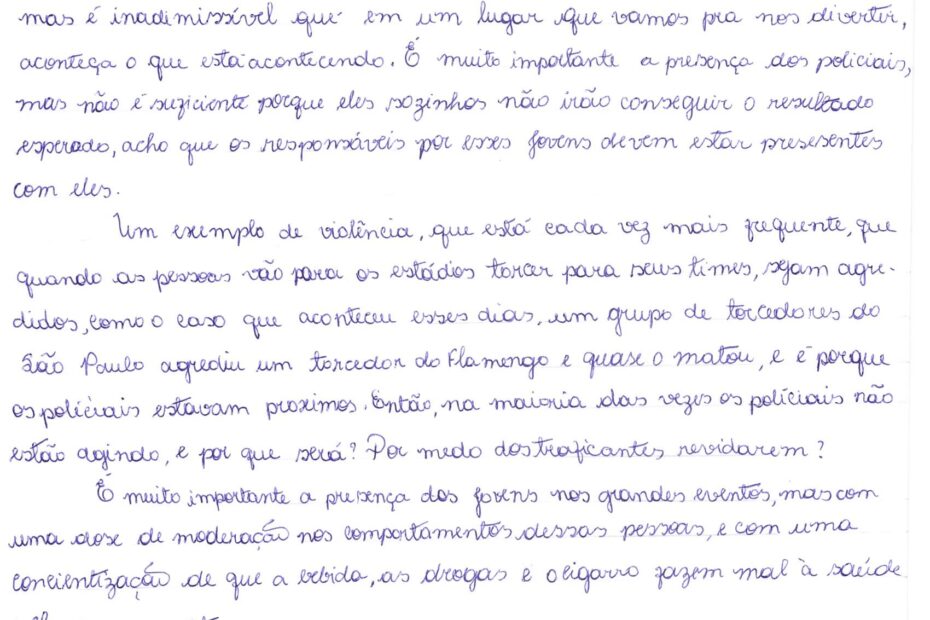 mas é inadimissível que em um lugar que vamos pra nos divertir,
aconteça o que está acontecendo. É muito importante a presença dos policiais,
mas não é suficiente porque eles sozinhos não irão conseguir o resultado
esperado, acho que os responsáveis por esses jovens devem estar presesentes
com eles.
Um exemplo de violência, que está cada vez mais frequente, que
quando as pessoas vão para os estádios torcer para seus times, sejam agre-
didos, como o caso que aconteceu esses dias, um grupo de torcedores do
São Paulo agrediu um torcedor do Flamengo e quase o matou, e é porque
os políciais estavam proximos. Então, na maioria das vezes os políciais não
estão agindo, e por que será? Por medo dos traficantes revidarem?
É muito importante a presença dos jovens nos grandes eventos, mas com
uma dose de moderação nos comportamentos dessas pessoas, e com uma
concientização de que a bebida, as drogas e o cigarro fazem mal à saúde